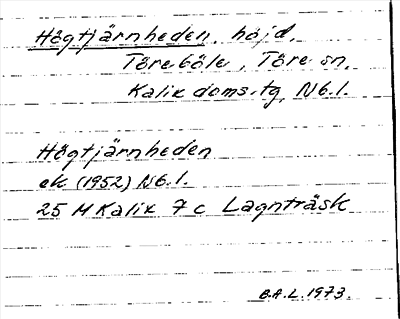 Högtjärnheden, höjd,
Töreböle, Töre sn,
Kalix doms.tg, Nb.l.
Högtjärnheden
ek (1952) Nb.l.
25 M Kalix 7 c Lagnträsk
B.A.L. 1973.